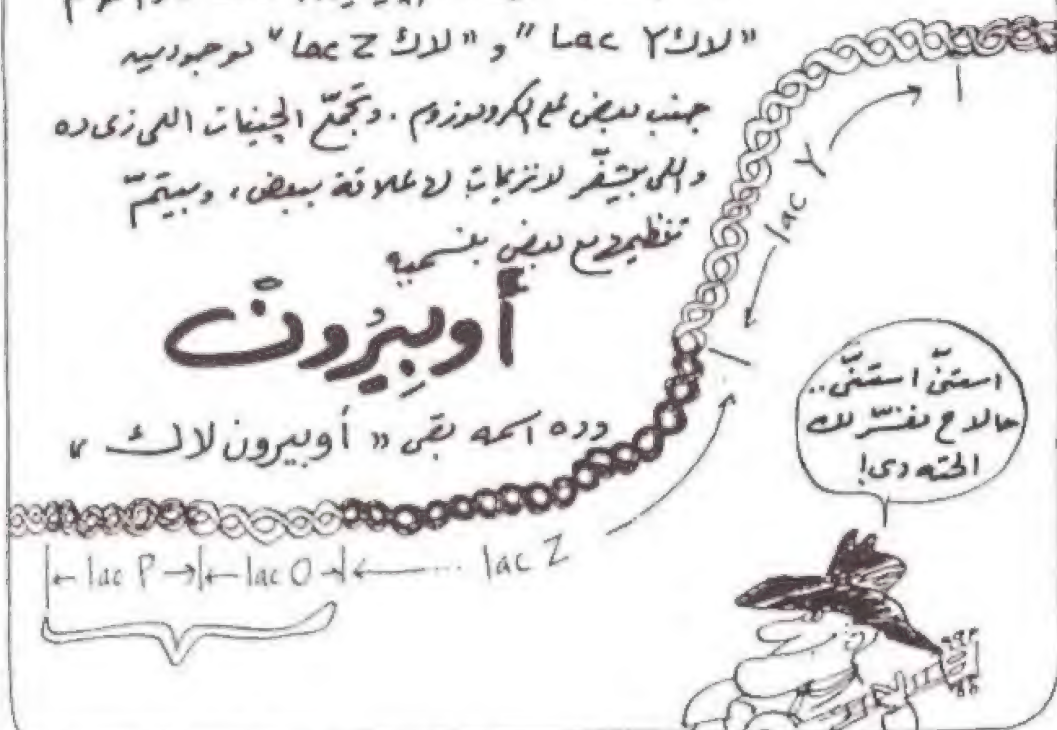 "لاك lac Y" و "لاك lac Z" موجودين
جنب بعض على الكروموزوم. وتجمّع الجينات اللى زى ده
واللى بيتشفّر لانزيمات لها علاقة ببعض، وبيتمّ
تنظيمها مع بعض بنسميه
أوبيرون
وده اسمه بقى "أوبيرون لاك"
lac Y
استنّى استنّى..
حالاً ح نفسّر لك
الحته دى!
lac P
lac O
... lac Z